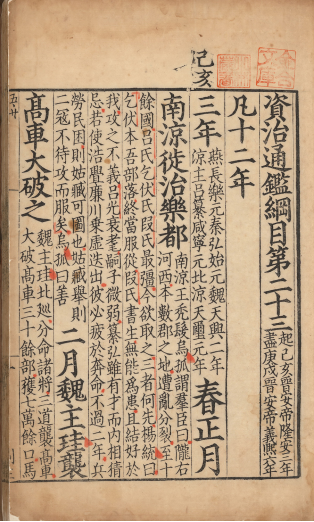 資治通鑑綱目第二十三
起己亥晉安帝隆安三年
盡庚戌晉安帝義熙六年
凡十二年
己亥
三年
燕長樂元秦弘始元魏天興二年
涼主呂纂咸寧元北涼天璽元年
春正月
南涼徙治樂都
南涼王禿髮烏孤謂羣臣曰隴右
河西本數郡之地遭亂分裂至十
餘國呂氏乞伏氏段氏最彊今欲取之三者何先楊統曰
乞伏本吾部落終當服從段氏書生無能爲患且結好於
我攻之不義呂光衰耄嗣子微弱纂弘雖有才而内相猜
忌若使浩亹廉川乗虛迭出彼必疲於奔命不過二年兵
勞民困則姑臧可圖也姑臧舉則
二寇不待攻而服矣烏孤曰善
二月魏主珪襲
高車大破之
魏主珪北廵分命諸將三道襲高車
大破高車三十餘部獲七萬餘口馬